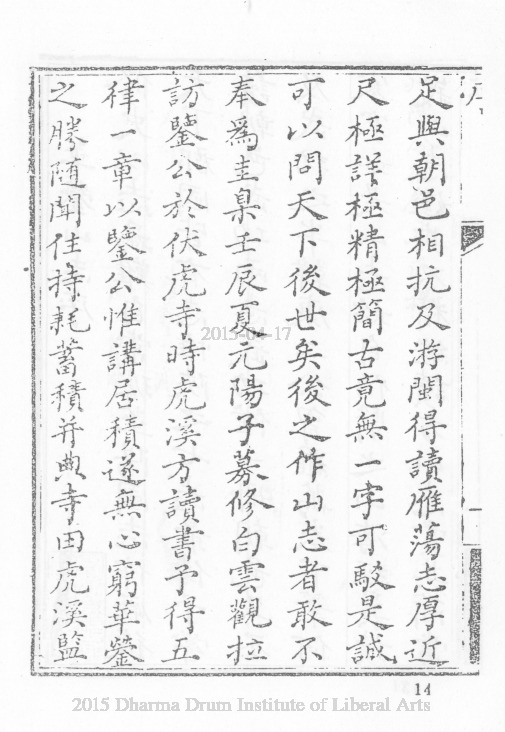 足與朝邑相抗及游閩得讀雁蕩志厚近
尺極詳極精極簡古竟無一字可駁是誠
可以問天下後世矣後之作山志者敢不
奉爲圭臬壬辰夏元陽子募修白雲觀拉
訪鑒公於伏虎寺時虎溪方讀書予得五
律一章以鑒公惟講居積遂無心窮華鎣
之勝隨聞住持耗蓄積并典寺田虎溪監
2015-04-17
14
2015 Dharma Drum Institute of Liberal Arts